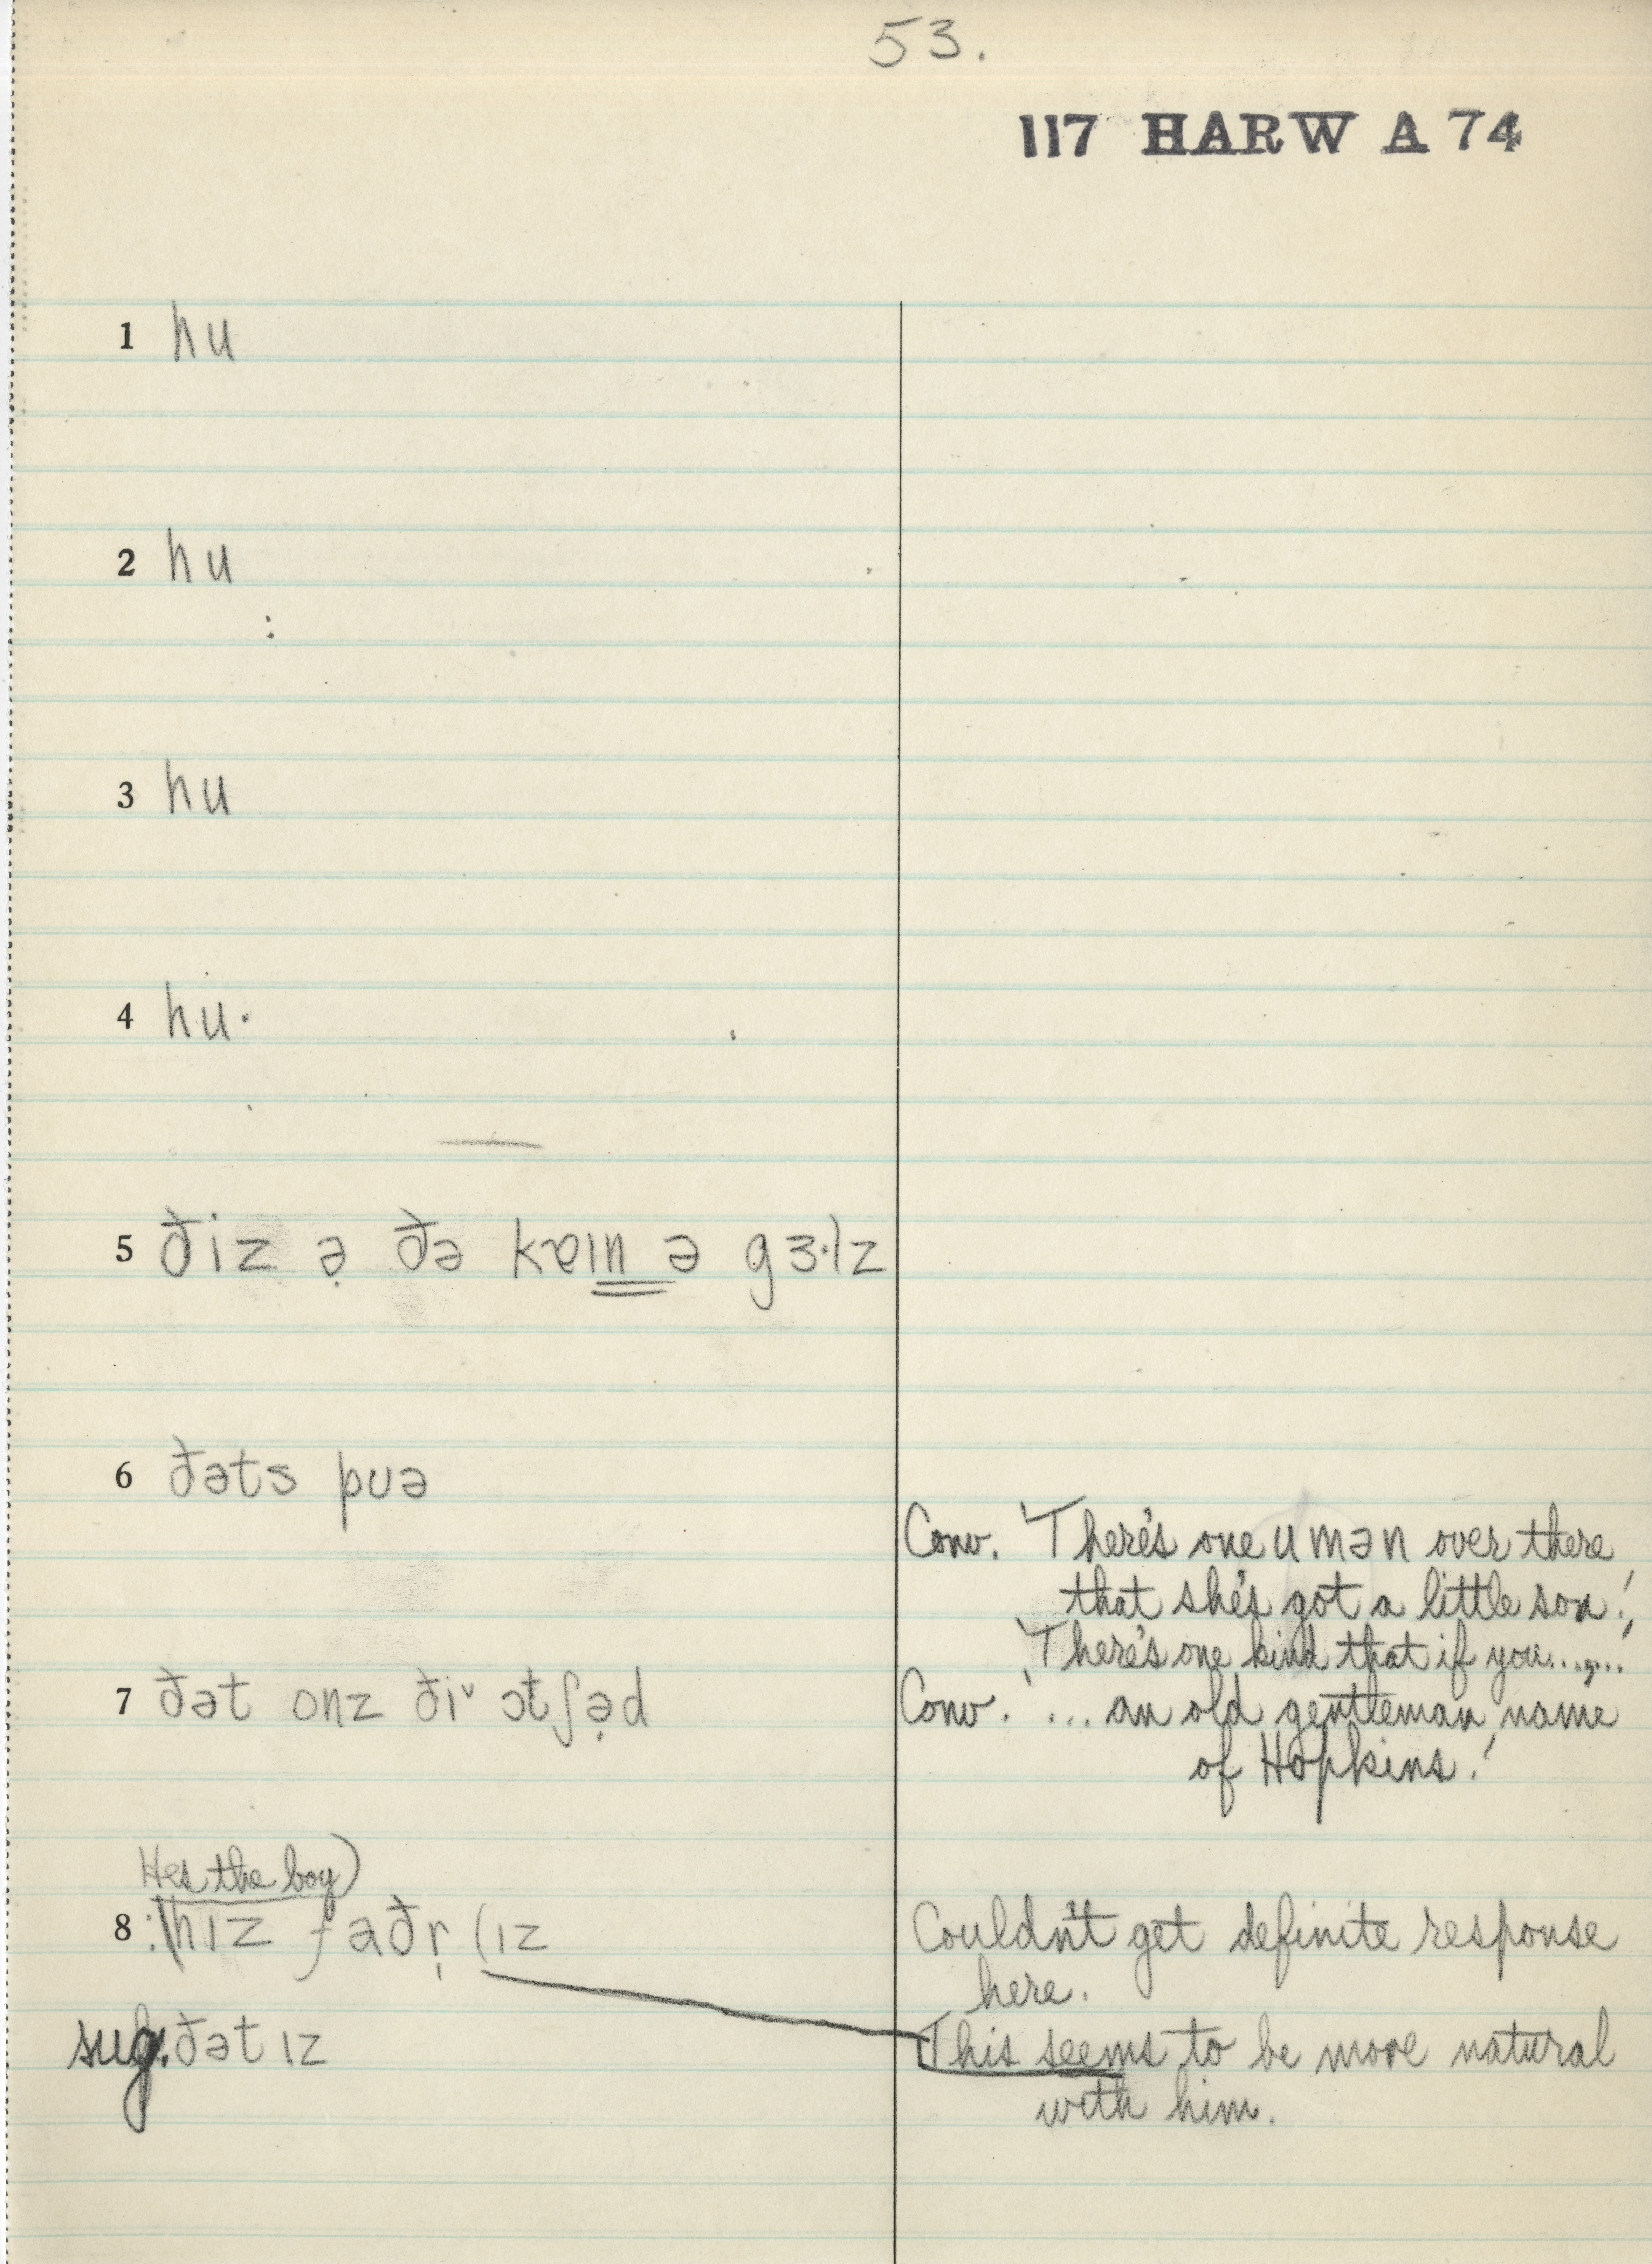 53.
117 HARW A 74
1 hu
2 hu
3 hu
4 hu·
5 ðiz ə̣ ðə kɐɪn ə gɜ·lz
6 ðəts puə
Conv. 'There's one u mən over there
that she's got a little son.'
'There's one kind that if you......'
7 ðət onz ði˅ ɔtʃə̣d
Conv. '... an old gentleman name
of Hopkins.'
He's the boy)
8 hɪz faðr̩ (ɪz
Couldn't get definite response
here.
sug. ðət ɪz
This seems to be more natural
with him.